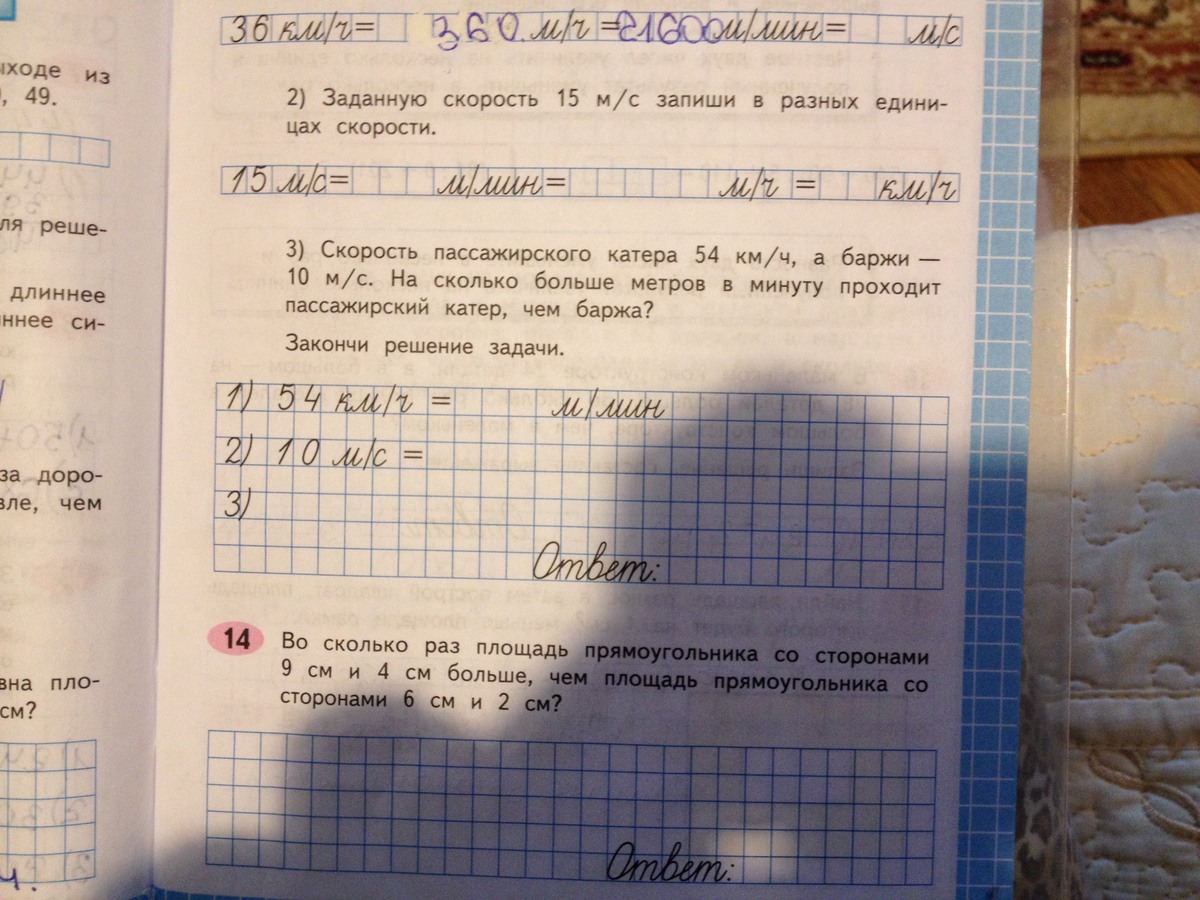 36 км/ч= 360 м/ч =21600м/мин= м/с
2) Заданную скорость 15 м/с запиши в разных едини-
цах скорости.
15 м/с= м/мин= м/ч = км/ч
3) Скорость пассажирского катера 54 км/ч, а баржи —
10 м/с. На сколько больше метров в минуту проходит
пассажирский катер, чем баржа?
Закончи решение задачи.
1) 54 км/ч = м/мин
2) 10 м/с =
3)
Ответ:
14 Во сколько раз площадь прямоугольника со сторонами
9 см и 4 см больше, чем площадь прямоугольника со
сторонами 6 см и 2 см?
Ответ:
ыходе из
, 49.
ля реше-
длиннее
ннее си-
за доро-
вле, чем
вна пло-
см?
ч.